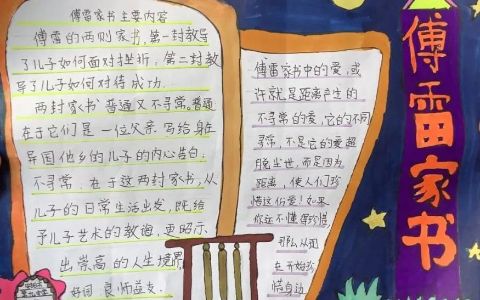 傅雷家书主要内容
傅雷的两则家书,第一封教导
了儿子如何面对挫折,第二封教
导了儿子如何对待成功.
两封家书普通又不寻常,普通
在于它们是一位父亲写给身在
异国他乡的儿子的内心告白.
不寻常.在于这两封家书,从
儿子的日常生活出发,既给
予儿子艺术的教诲,更昭示
出崇高的人生境界
良师益友.
傅雷家书中的爱,或
许就是距离产生的
不寻常的爱,它的不同
寻常,不是它的爱超
脱尘世,而是因为
距离,使人们珍
惜这份爱!如果
你还不懂得珍惜,
那么从现
在开始珍
惜自边
傅雷家书